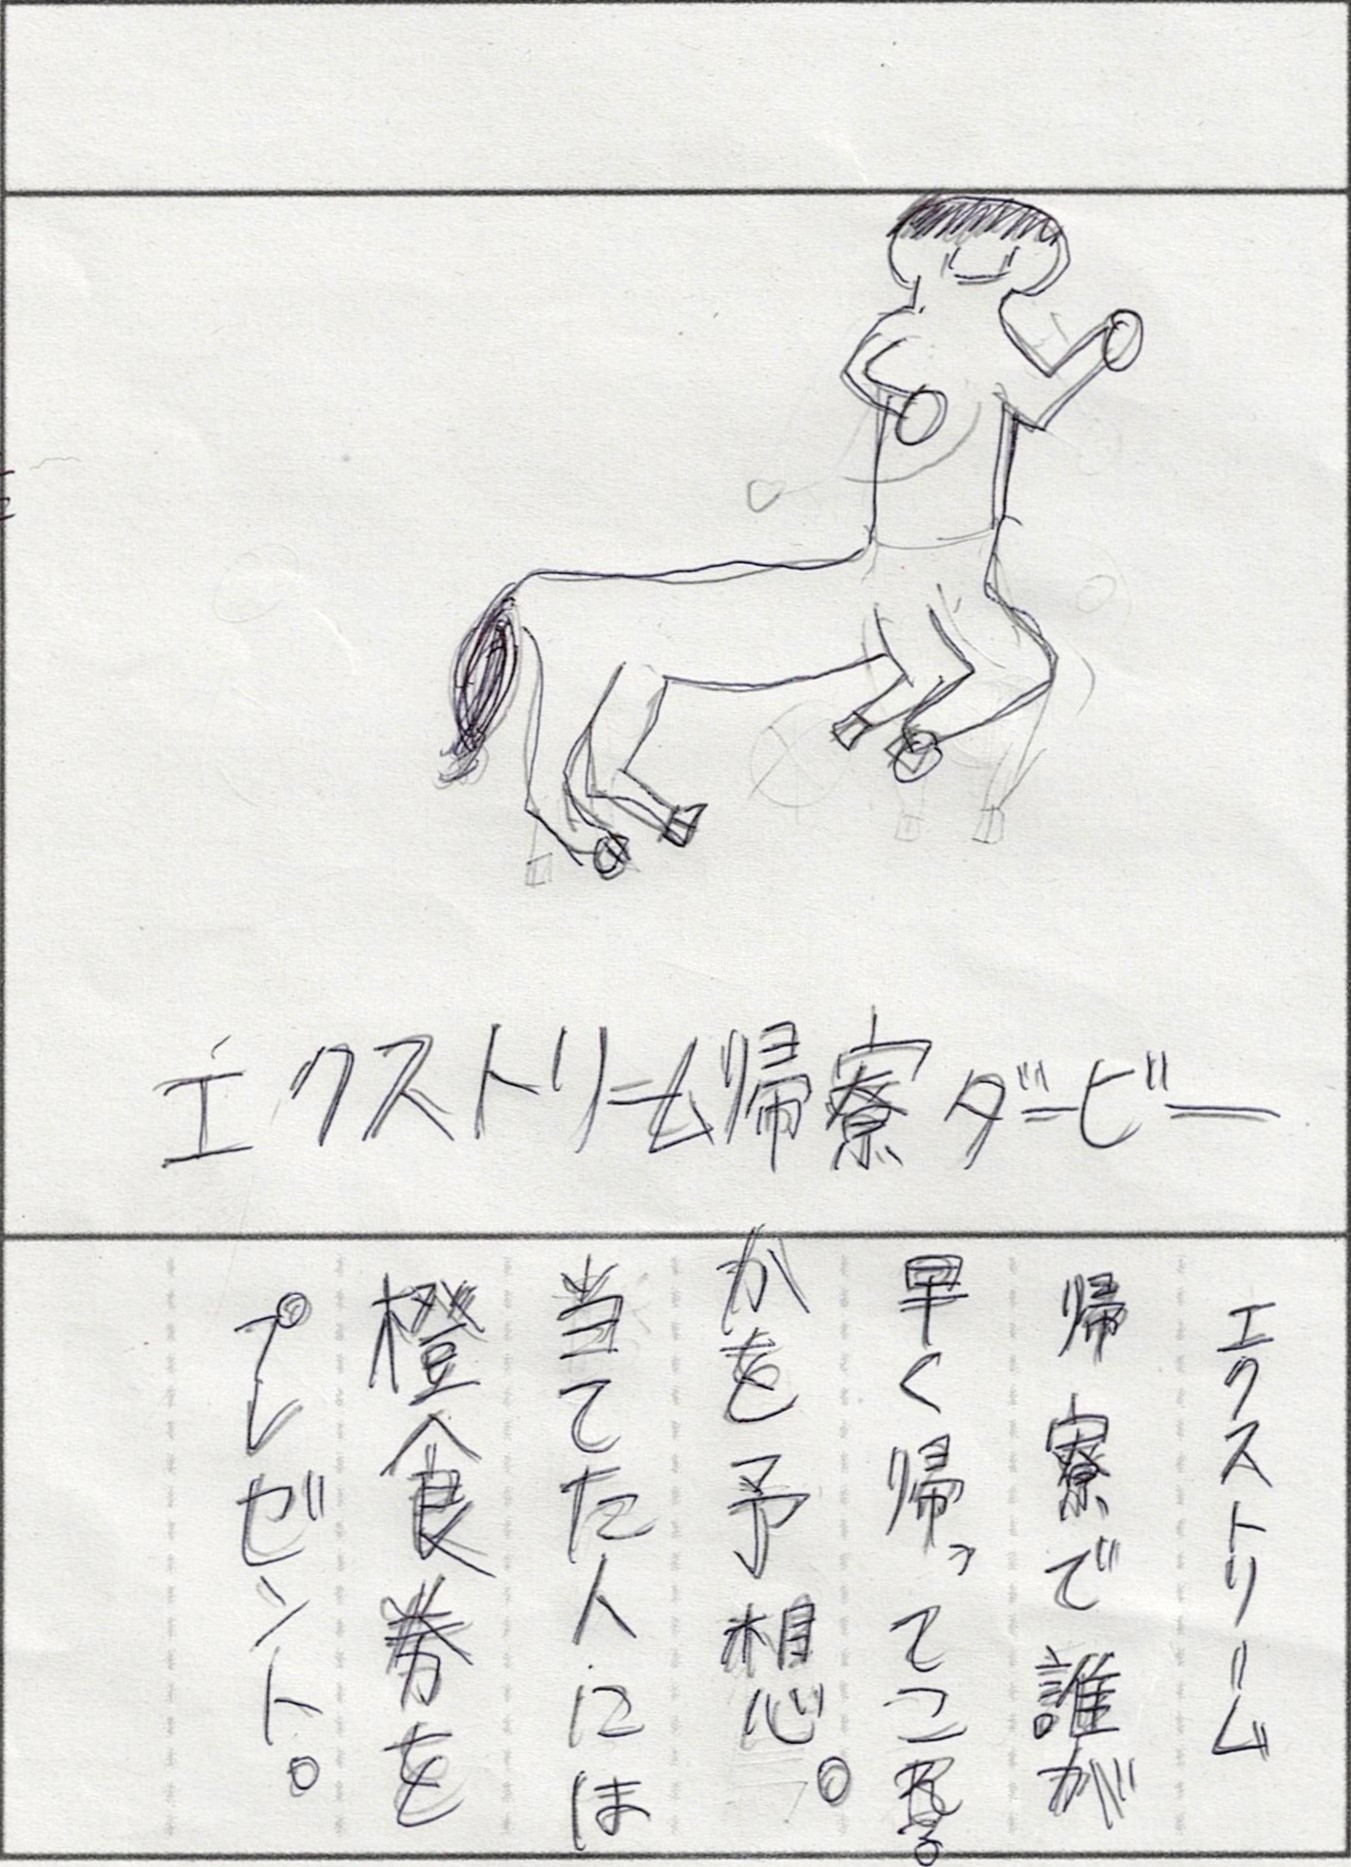 エクストリーム帰寮ダービー
エクストリーム
帰寮で誰が
早く帰ってこれる
かを予想。
当てた人には
橙食券を
プレゼント。